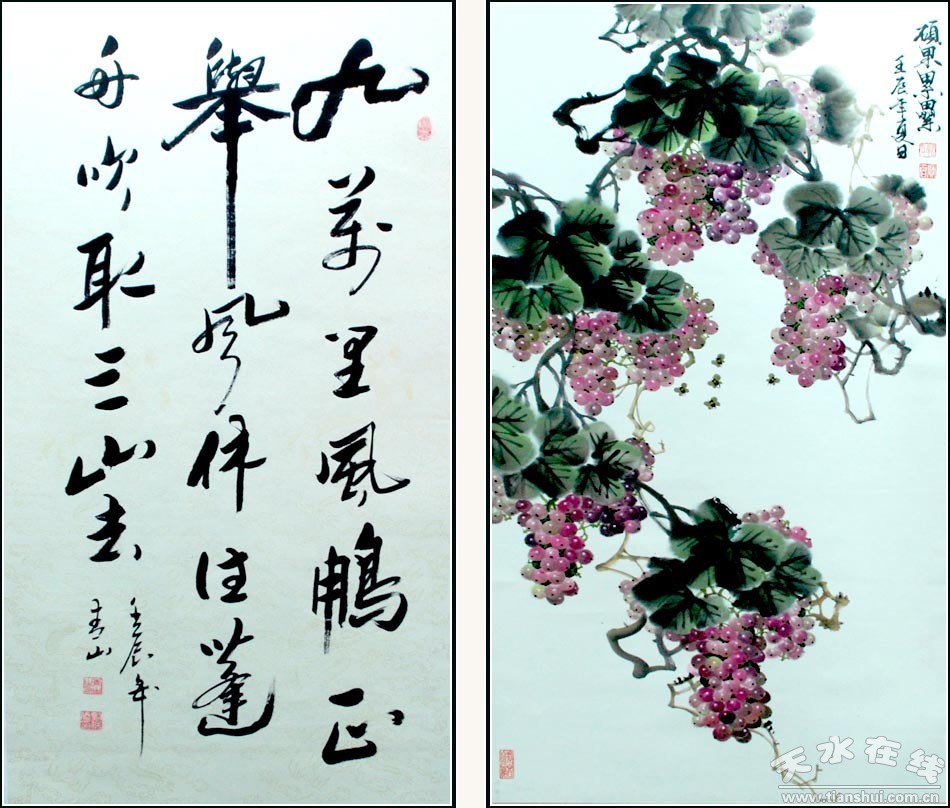 九萬里風鵬正
舉風休住蓬
舟吹取三山去
壬辰年
青山
碩果累累
壬辰年夏日
天水在线
www.tianshui.com.cn